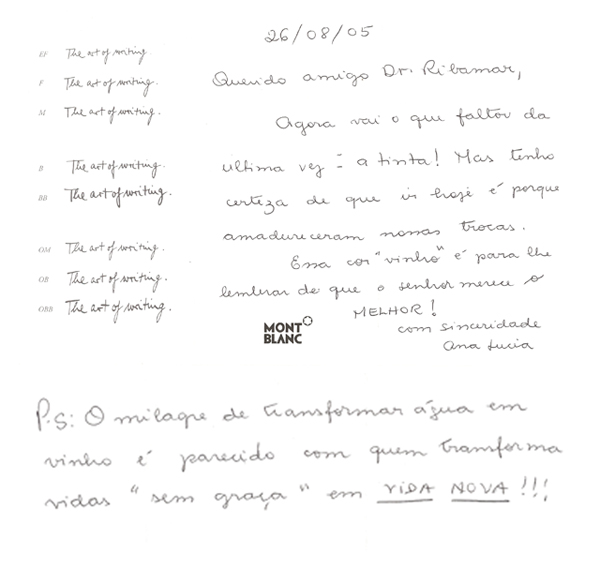 EF The art of writing
F The art of writing.
M The art of writing.
B The art of writing.
BB The art of writing.
OM The art of writing.
OB The art of writing.
OBB The art of writing.
26/08/05
Querido amigo Dr. Ribamar,
Agora vai o que faltou da
ultima vez = a tinta! Mas tenho
certeza de que ir hoje é porque
amadureceram nossas trocas.
Essa cor "vinho" é para lhe
lembrar de que o senhor merece o
MELHOR!
com sinceridade
Ana Lucia
MONT
BLANC
P.S: O milagre de transformar água em
vinho é parecido com quem transforma
vidas "sem graça" em VIDA NOVA!!!